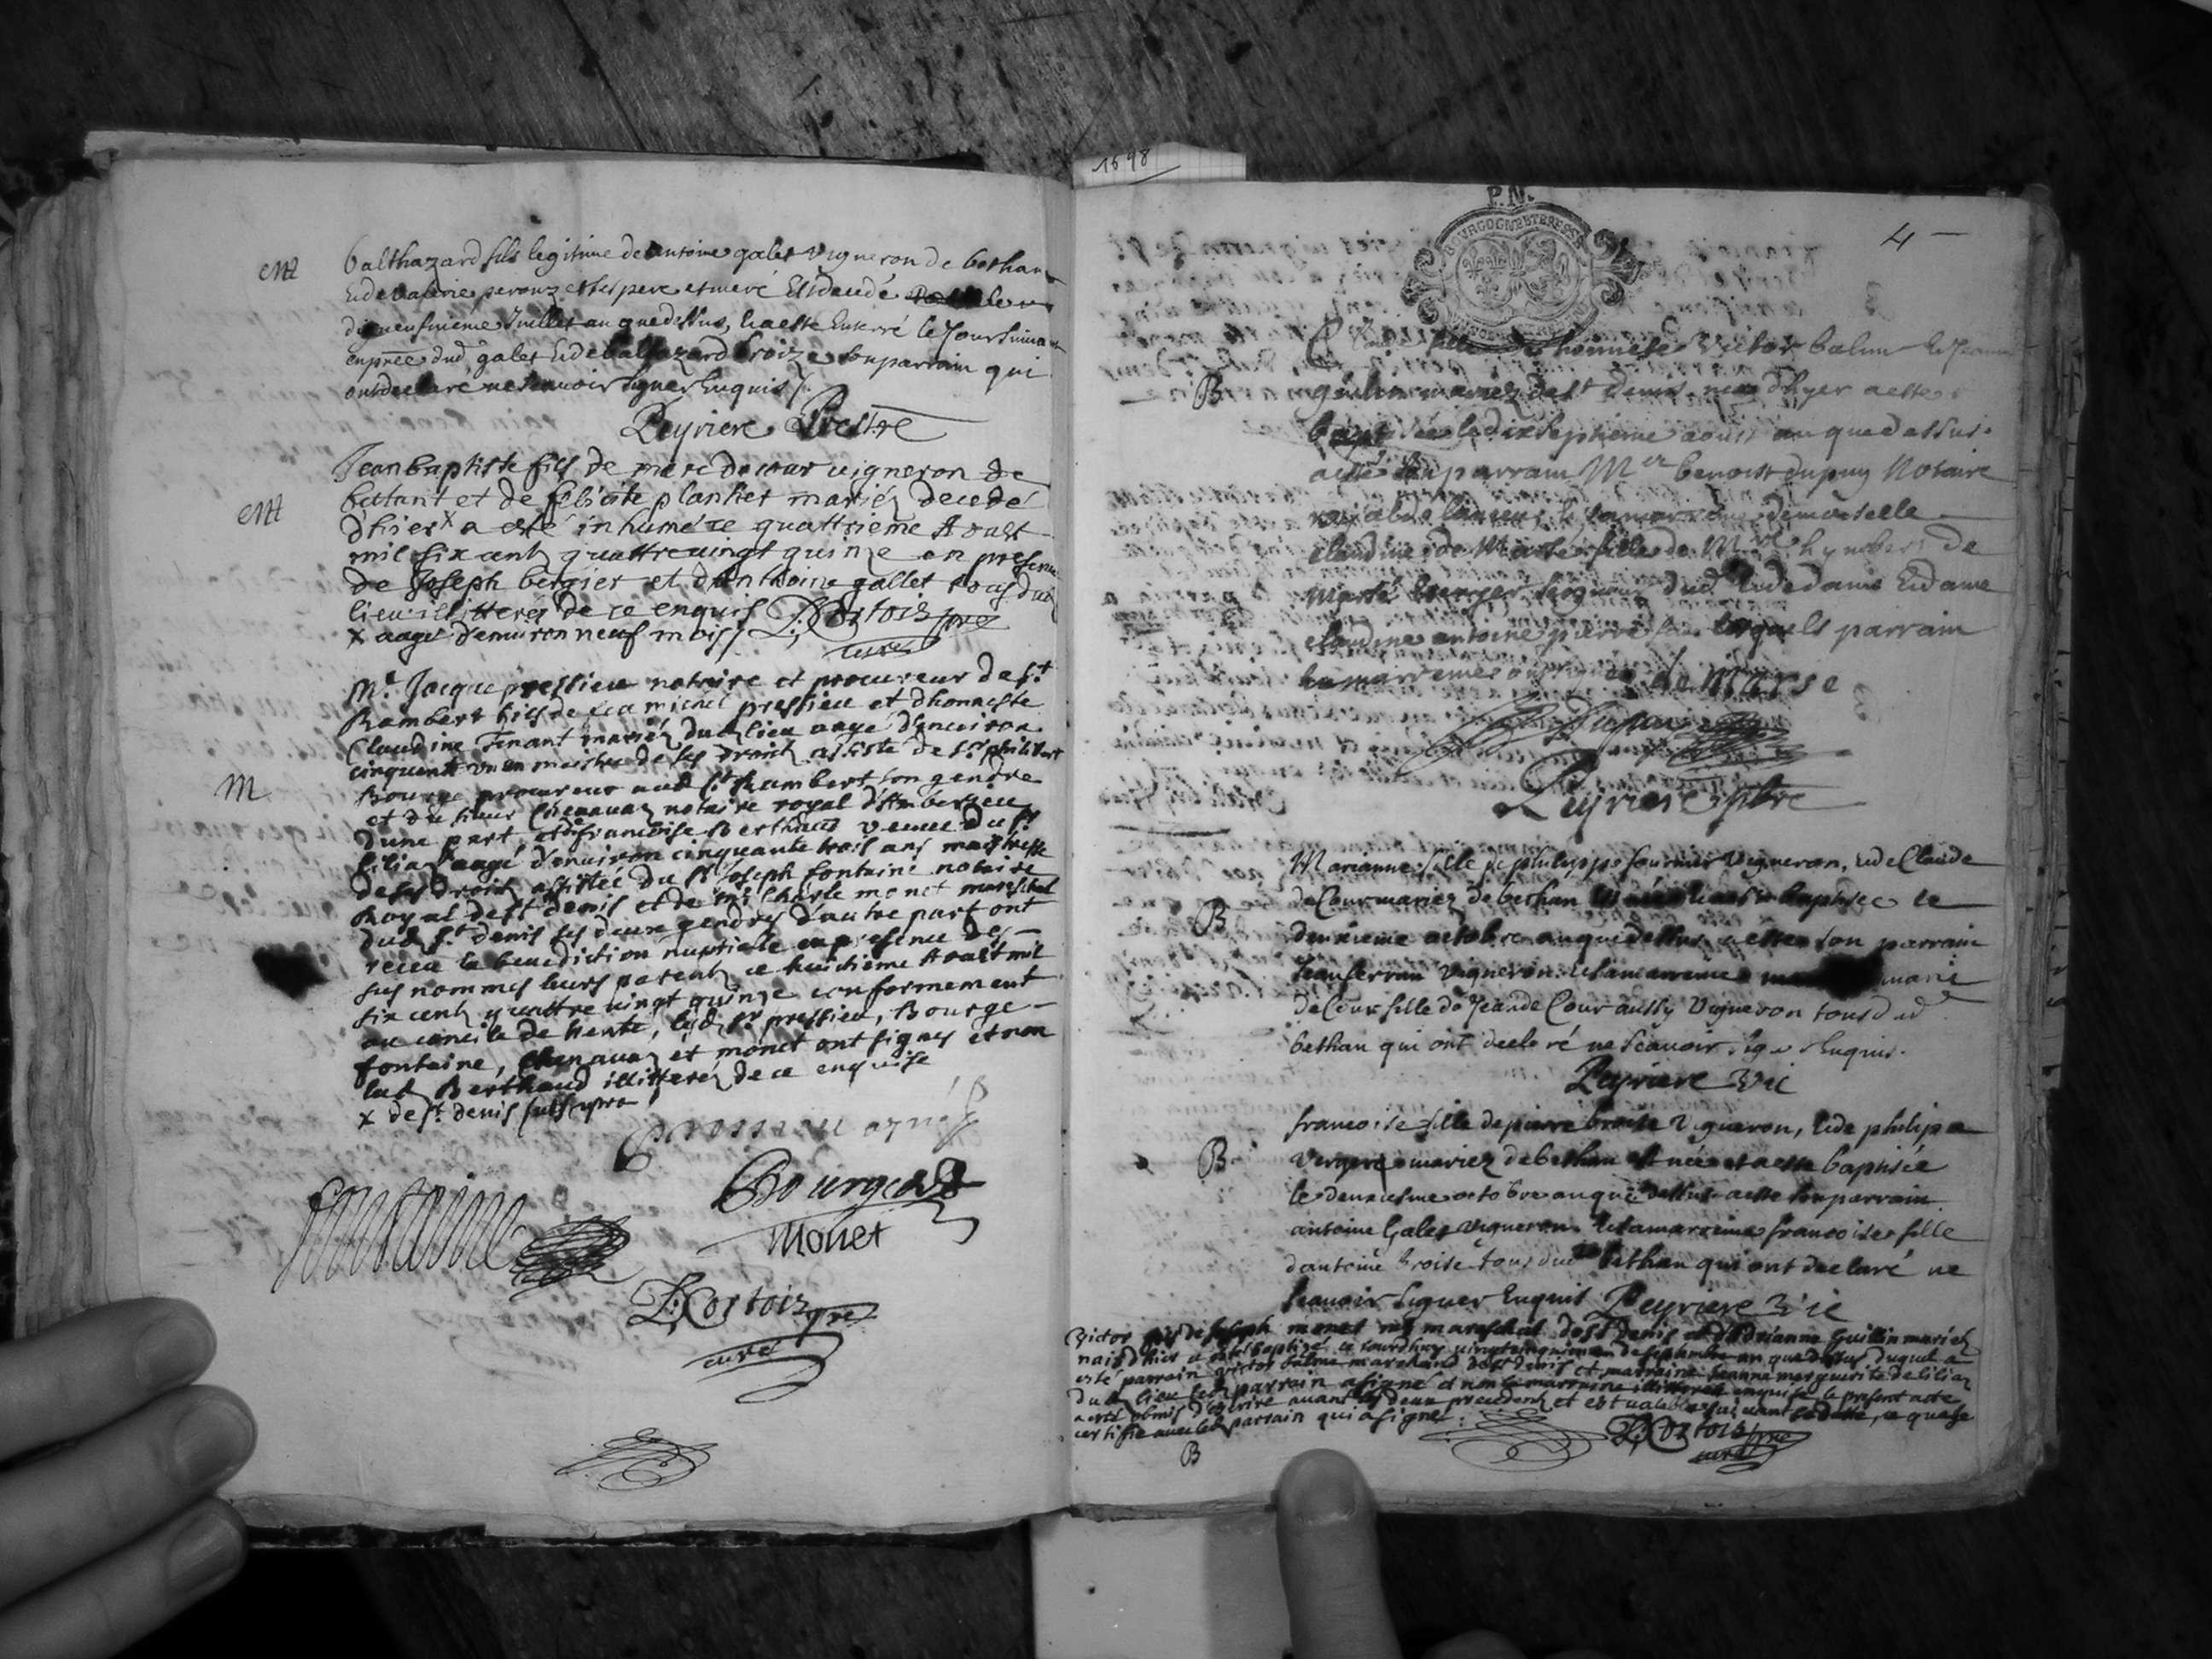 1698
ent
balthazard fils legitime de antoine galet vigneron de bethan
et de valerie perouz ses pere et mere Est decedé
dixneufvieme Juillet an que dessus, et a esté Enterré le Jour suiva
en pnce dud galet et de balthazard broize son parrain qui
ont declaré ne scavoir signer Enquis /.
Peyriere Prestre
ent
Jean baptiste fils de marc de cour vigneron de
bettant et de felicite planthet mariéz decedé
d'hier x a esté inhumé ce quattrieme Aoust
mil six centz quattre vingt quinze en presence
de Joseph bergier et d'Anthoine gallet tous dud
lieu illitteréz de ce enquis P. Cortois pre
x aagé d'environ neuf mois /. curé
m
Me Jacque pressieu notaire et procureur de st
Rambert fils de feu michel pressieu et d'honneste
Claudine Tenant mariéz dud lieu aagé d'environ
cinquante un an maistre de ses droitz assisté de sr philibert
Bourge procureur aud st Rambert son gendre
et du sieur Chenavaz notaire royal d'Ambérieu
d'une part et de francoise Berthaud veuve du sr
Liliaz aagé d'environ cinquante trois ans maistresse
de ses droitz assistée du sr Joseph fontaine notaire
Royal de st denis et de me Charle monet mareschal
dud st denis ses deux gendres d'autre part ont
receu la benediction nuptialle en presence des
sus nommes leurs parentz ce huictieme Aoust mil
six centz quattre vingt quinze conformement
au concile de trente, lesd sr pressieu, Bourge
fontaine, chenavaz et monet ont signes et non
lad Berthaud illitterée de ce enquise
x de st denis
Bourge
fontaine
Monet
P. Cortois pre
curé
P.N.
BOURGOGNE ET BRESSE
4
B
fille de honneste Victor balme et Jeanne
guilin mariez de st denis née d'hyer a esté
baptisée le dixseptieme aoust an que dessus
a esté son parrain Mer benoist dupuy Notaire
royal de et sa marreine demoiselle
claudine de Marsé fille de Mre de
Marsé Escuyer seigneur dud et dame
claudine antoine pierre lesquels parrain
et marreine ont signé de Marse
Dupuy
Peyriere pbre
B
Marianne fille de philippe fournier Vigneron, et de Claude
de Cour mariez de bethan baptisée le
deuxieme octobre an que dessus a esté son parrain
Jean ferran Vigneron et sa marreine marie
de Cour fille de Jean de Cour aussy Vigneron tous dud
bethan qui ont declaré ne scavoir signer Enquis.
Peyriere Vic
B
francoise fille de pierre broise Vigneron, et de philipa
Vergere mariez de bethan est née et a esté baptisée
le deuxieme octobre an que dessus a esté son parrain
antoine Galet vigneron et sa marreine francoise fille
d'antoine broise tous dud bethan qui ont declaré ne
scavoir signer Enquis Peyriere Vic
Victor fils de Joseph monet me mareschal de st denis et d'Adrianne Guillin mariéz
naid d'hier a esté baptizé ce jourdhuy vingtcinquieme de septembre an que dessus duquel a
esté parrain victor balme marchand de st denis et marraine Jeanne marguerite de liliaz
dud lieu led parrain a signé et non la marraine illitterée enquise le present acte
a esté obmis d'escrire avant les deux precedentz et est valable suivant sa datte, ce que je
certifie avec led parrain qui a signé.
P. Cortois pre
curé
B